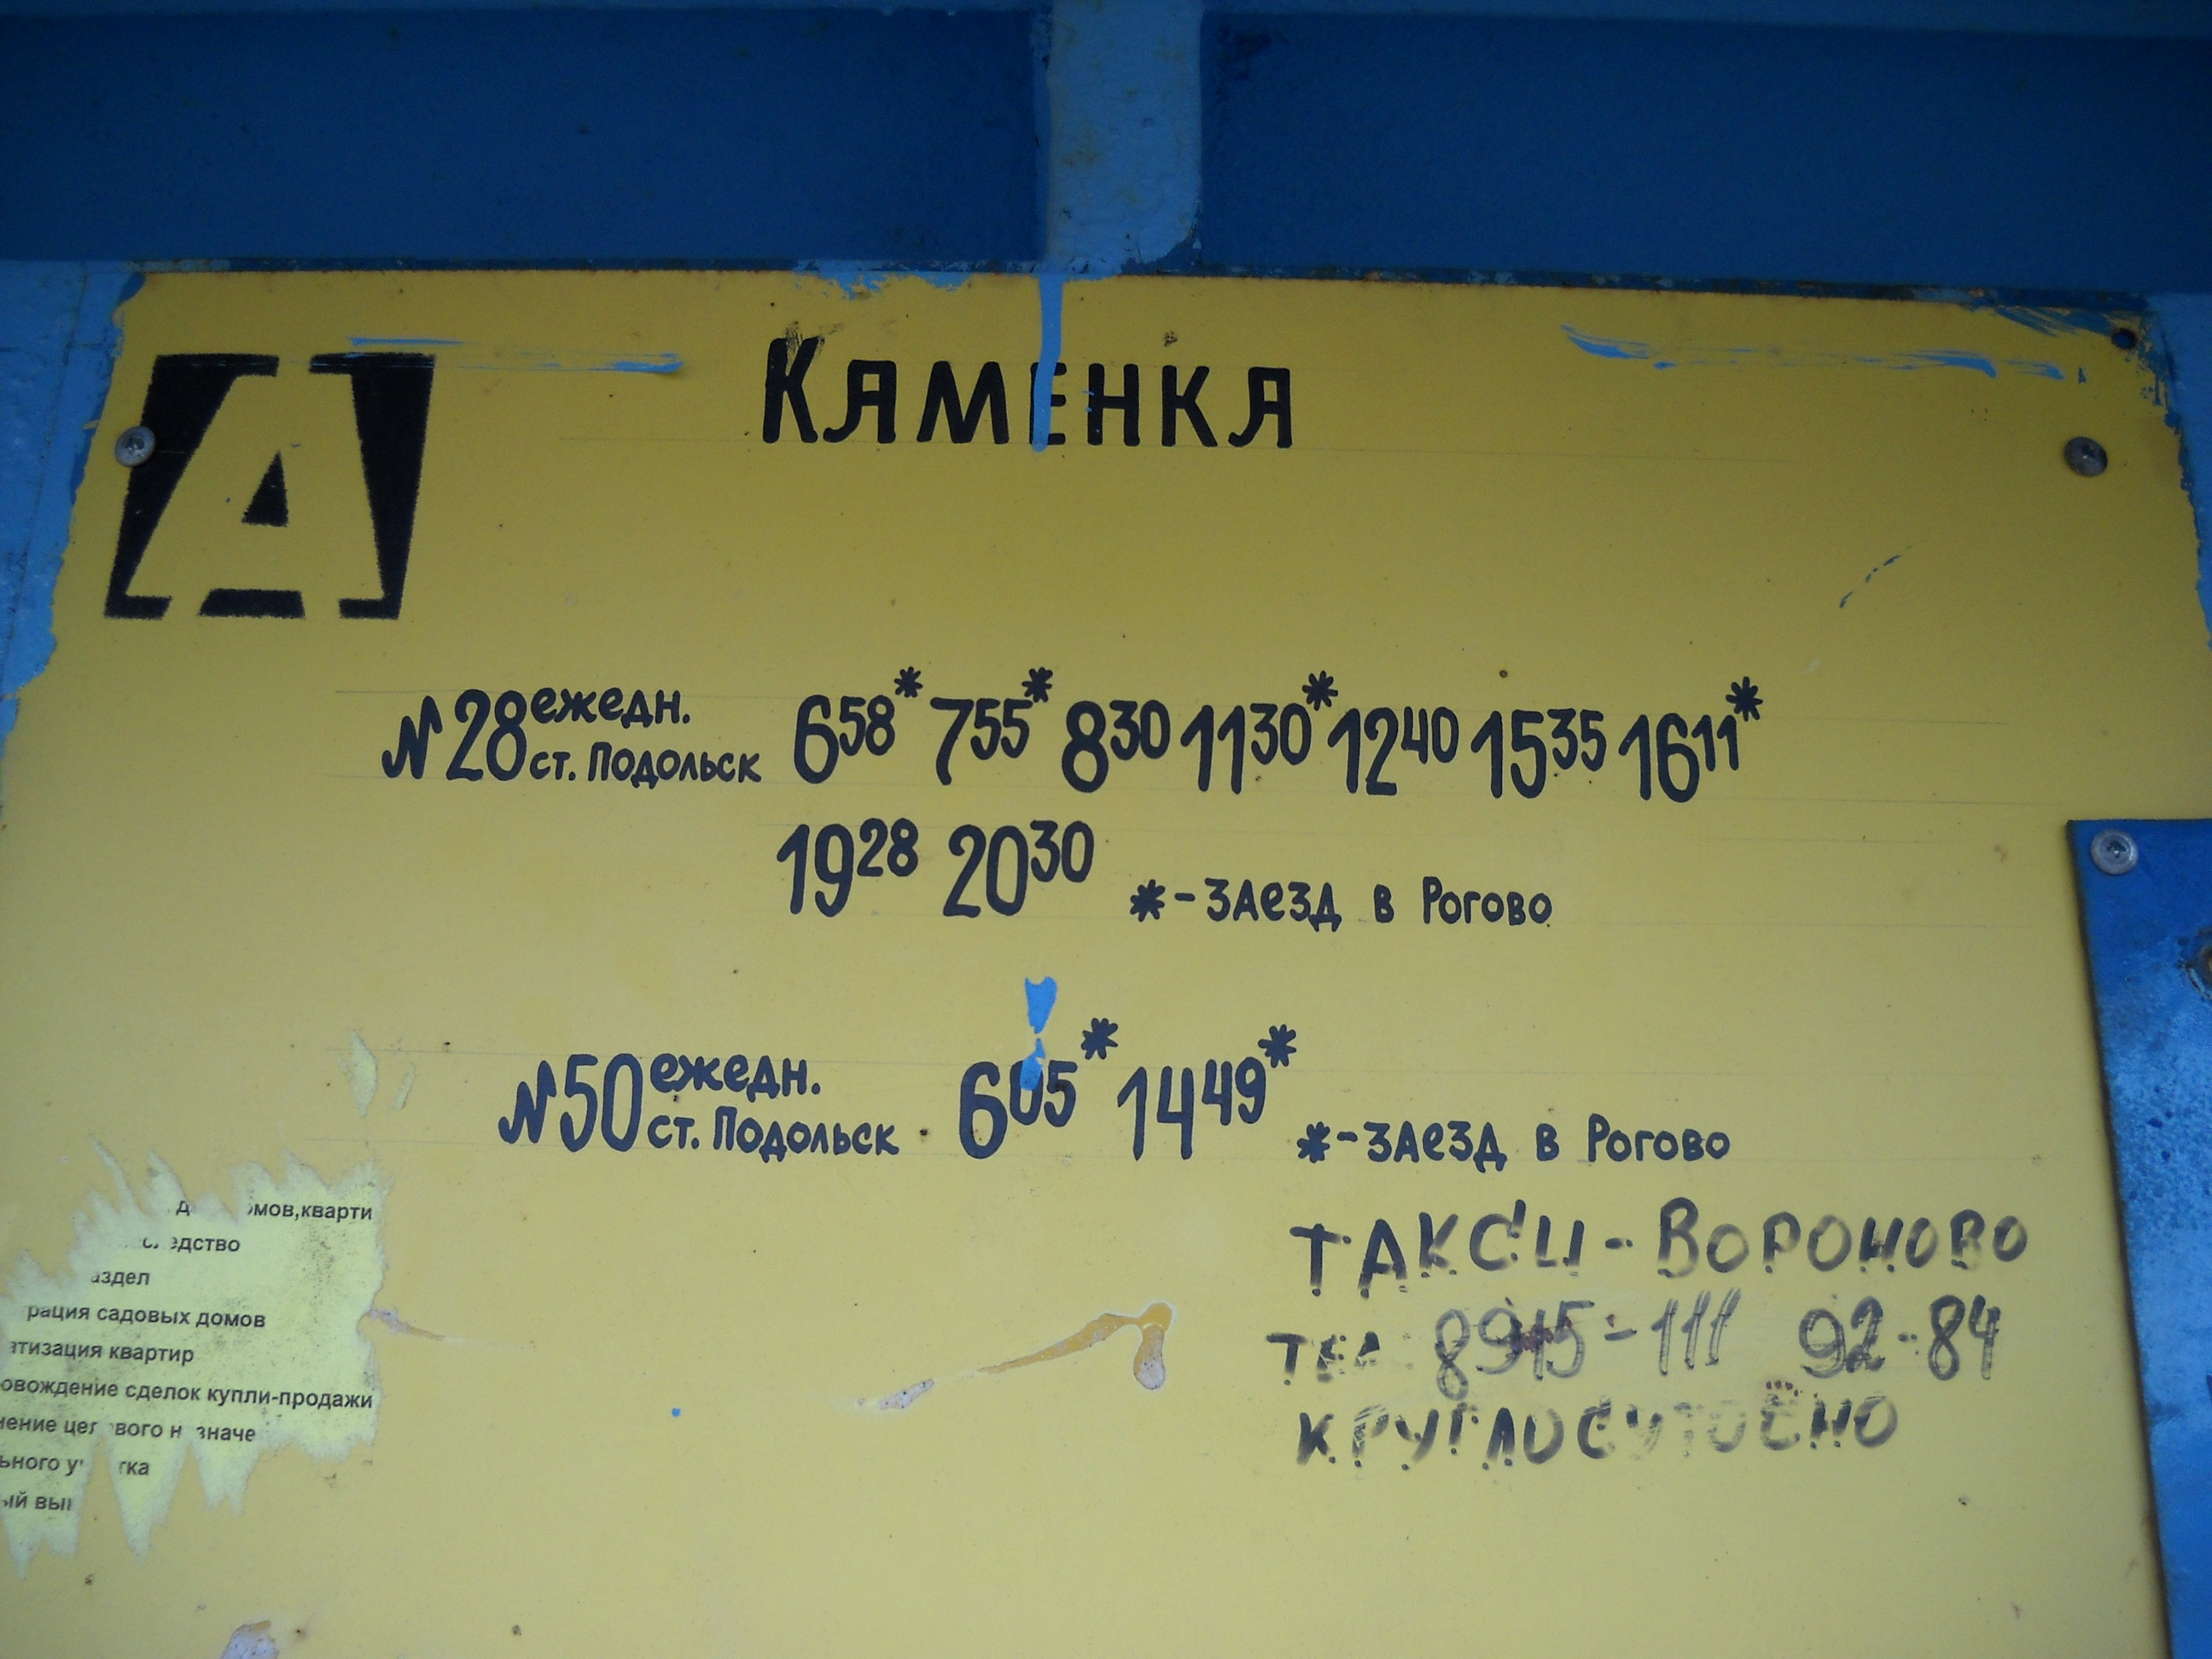 А
КАМЕНКА
№28 ежедн. ст. Подольск 6 58* 7 55* 8 30 11 30* 12 40 15 35 16 11*
19 28 20 30 *-заезд в Рогово
№50 ежедн. ст. Подольск 6 05* 14 49* *-заезд в Рогово
ТАКСИ-ВОРОНОВО
ТЕЛ 8915-111 92-84
КРУГЛОСУТОЧНО
мов,кварти
едство
аздел
рация садовых домов
атизация квартир
овождение сделок купли-продажи
нение це вого н значе
ьного у тка
ый вы